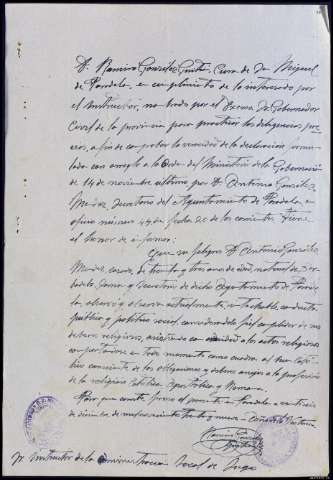 D. Ramiro González Gontá, Cura de San Miguel
de Paradela, en cumplimiento de lo interesado por
el Instructor, nombrado por el Excmo. Sr. Gobernador
Civil de la provincia para practicar las diligencias preci-
sas, a fin de comprobar la veracidad de la declaración, formu-
lada con arreglo a la Orden del Ministerio de la Gobernación
de 14 de noviembre último por D. Antonio González
Méndez, Secretario del Ayuntamiento de Paradela, en
oficio número 44 de fecha 20 de los corrientes, tiene
el honor de informar:
Que su feligrés D. Antonio González
Méndez, casado, de treinta y tres años de edad, natural de
y Secretario de dicho Ayuntamiento de Parade-
la, observó y observa actualmente intachable conducta
pública y político social, considerándole fiel cumplidor de sus
deberes religiosos, asistiendo con a los actos religiosos
comportándose en todo momento como cuadra al buen Cató-
lico consciente de las obligaciones y deberes anejos a la profesión
de la religión Católica Apostólica y Romana.
Para que conste, firmo el presente en Paradela a
de diciembre de mil novecientos treinta y nueve. Año de la Victoria
Ramiro González
Sr. Instructor de la Administración Local de Lugo